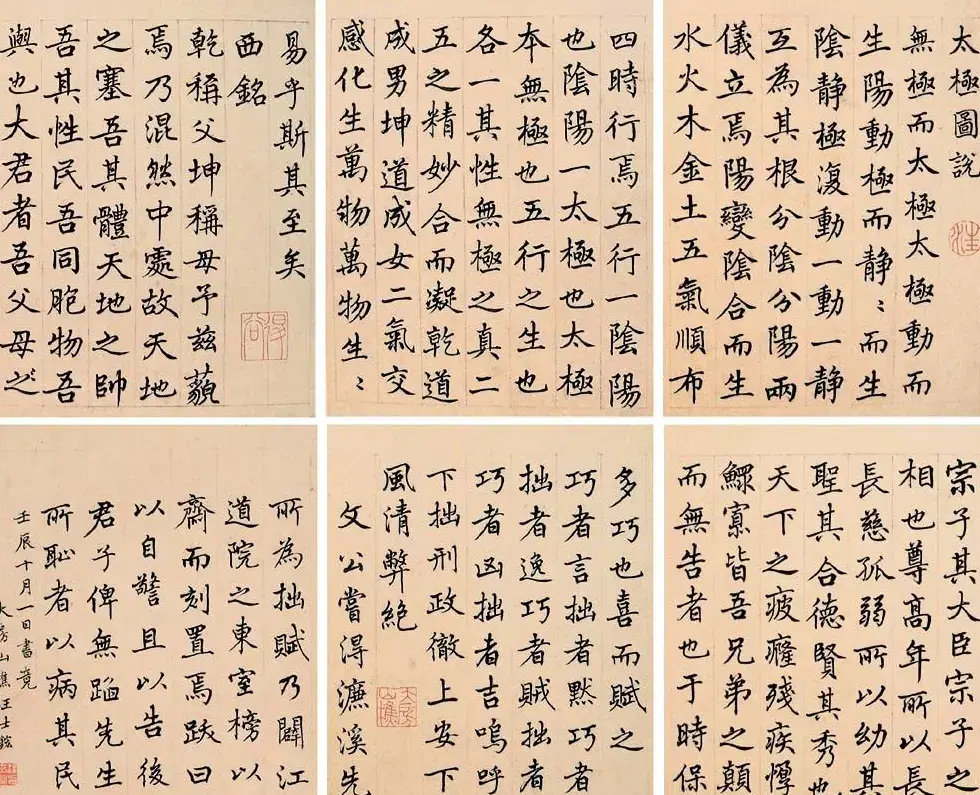 太極圖說
無極而太極太極動而
生陽動極而静：而生
陰静極復動一動一静
互為其根分陰分陽兩
儀立焉陽變陰合而生
水火木金土五氣順布
四時行焉五行一陰陽
也陰陽一太極也太極
本無極也五行之生也
各一其性無極之真二
五之精妙合而凝乾道
成男坤道成女二氣交
感化生萬物萬物生：
易乎斯其至矣
西銘
乾稱父坤稱母予兹藐
焉乃混然中處故天地
之塞吾其體天地之帥
吾其性民吾同胞物吾
與也大君者吾父母之
宗子其大臣宗子之
相也尊高年所以長
長慈孤弱所以幼其
聖其合德賢其秀也
天下之疲癃殘疾惸
鰥寡皆吾兄弟之顛
而無告者也于時保
多巧也喜而賦之
巧者言拙者默巧者
拙者逸巧者賊拙者
巧者凶拙者吉嗚呼
下拙刑政徹上安下
風清弊絶
文公嘗得濂溪先
所為拙賦乃闢江
道院之東室榜以
齋而刻置焉跋曰
以自警且以告後
君子俾無蹈先生
所恥者以病其民
壬辰十月一日書竟
山樵汪士鋐